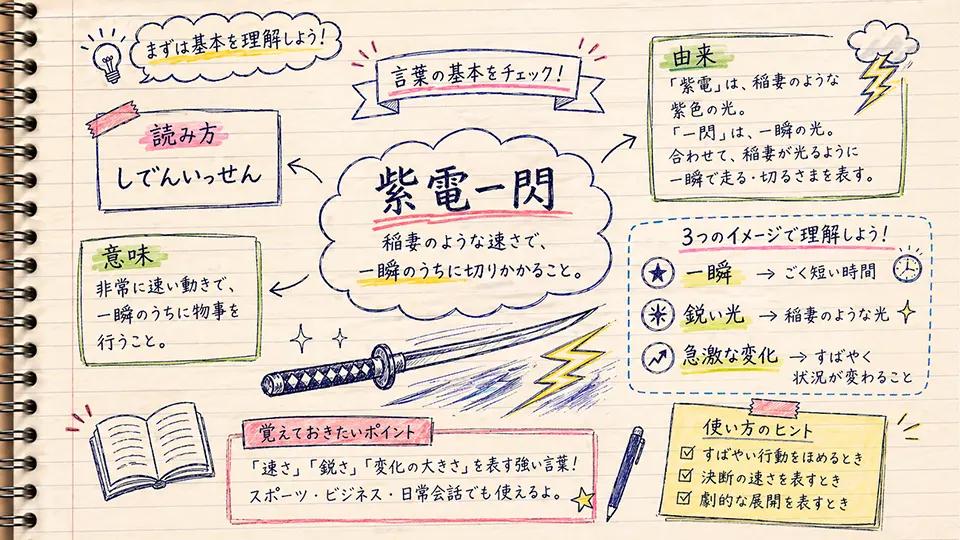 まずは基本を理解しよう!
言葉の基本をチェック!
読み方
しでんいっせん
紫電一閃
稲妻のような速さで、
一瞬のうちに切りかかること。
由来
「紫電」は、稲妻のような
紫色の光。
「一閃」は、一瞬の光。
合わせて、稲妻が光るように
一瞬で走る・切るさまを表す。
意味
非常に速い動きで、
一瞬のうちに物事を
行うこと。
3つのイメージで理解しよう!
一瞬 → ごく短い時間
鋭い光 → 稲妻のような光
急激な変化 → すばやく
状況が変わること
覚えておきたいポイント
「速さ」「鋭さ」「変化の大きさ」を表す強い言葉!
スポーツ・ビジネス・日常会話でも使えるよ。
使い方のヒント
すばやい行動をほめるとき
決断の速さを表すとき
劇的な展開を表すとき